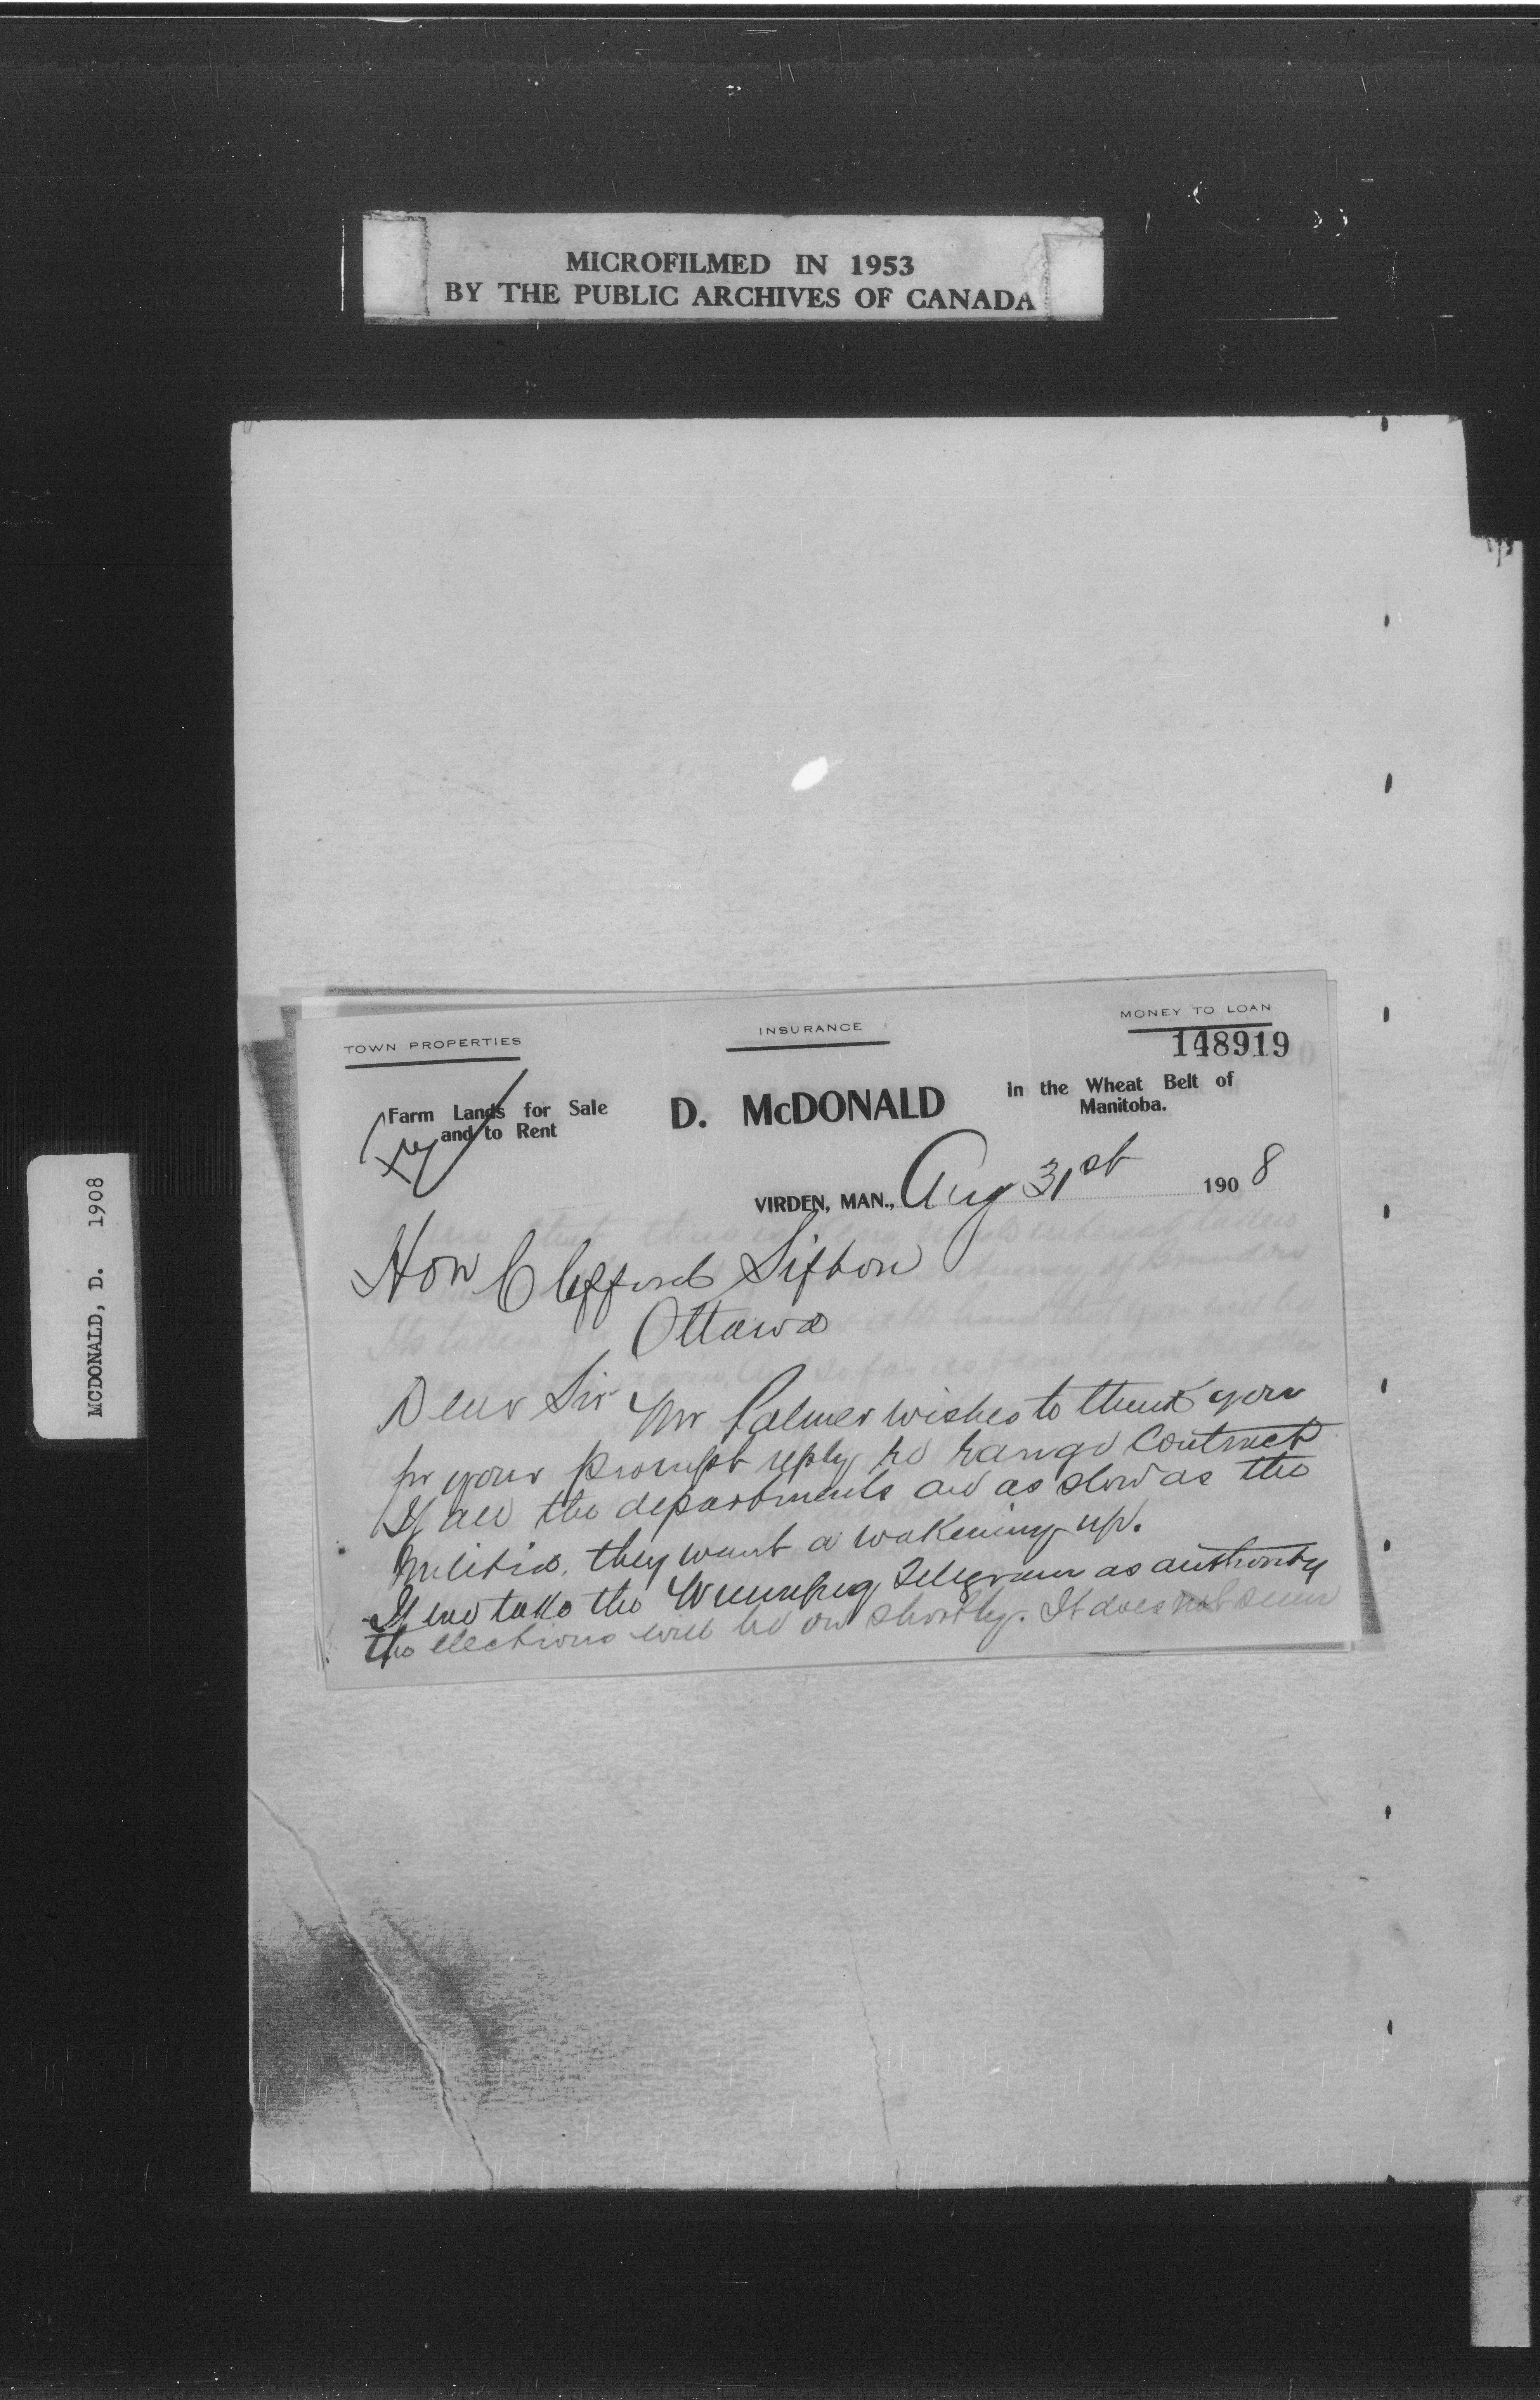 MICROFILMED IN 1953
BY THE PUBLIC ARCHIVES OF CANADA
MCDONALD, D. 1908
TOWN PROPERTIES
INSURANCE
MONEY TO LOAN
148919
Farm Lands for Sale
and to Rent
D. McDONALD
In the Wheat Belt of
Manitoba.
VIRDEN, MAN., Aug 31st 1908
Hon Clifford Sifton
Ottawa
Dear Sir Mr Palmer wishes to thank you
for your prompt reply re range Contract
If all the departments are as slow as the
Militia, they want a wakening up.
If we take the Winnipeg Telegram as authority
the elections will be on shortly. It does not seem